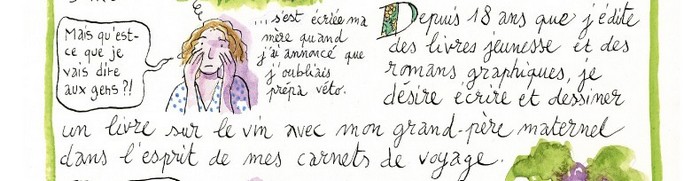 Mais qu'est-
ce que je
vais dire
aux gens ?!
...s'est écriée ma
mère quand
j'ai annoncé que
j'oubliais
prépa véto.
Depuis 18 ans que j'édite
des livres jeunesse et des
romans graphiques, je
désire écrire et dessiner
un livre sur le vin avec mon grand-père maternel
dans l'esprit de mes carnets de voyage.